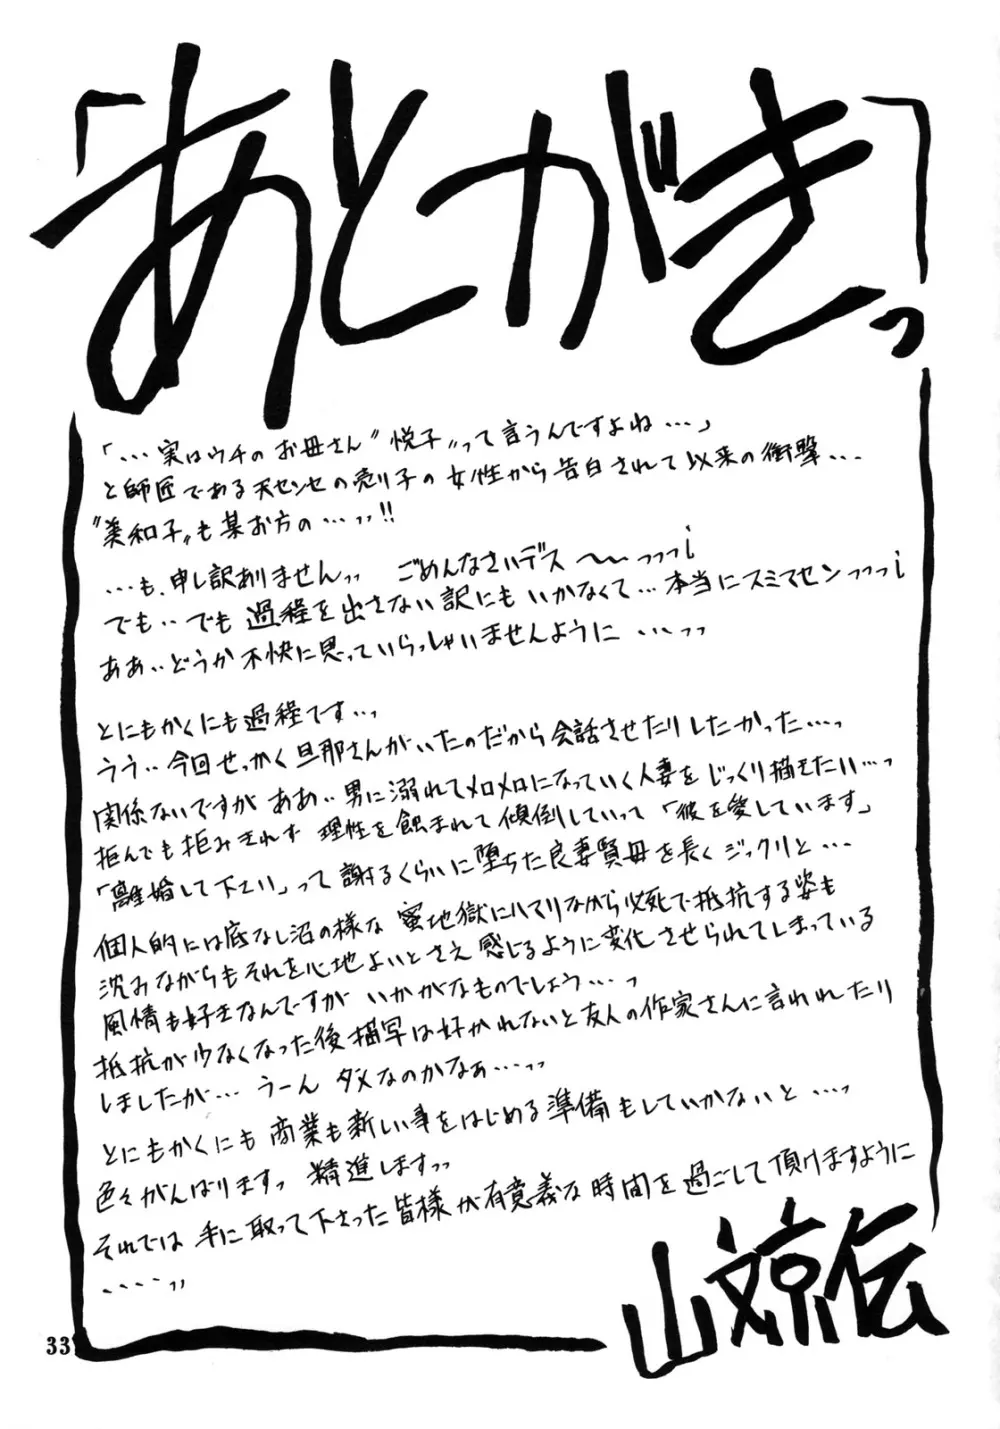 「あとがきっ」
「…実はウチのお母さん"悦子"って言うんですよね…」
と師匠である天センセの売り子の女性から告白されて以来の衝撃…
"美和子"も某お方の…ッッ!!
…も、申し訳ありませんッッ ごめんなさいデス〜〜っっっ¡
でも‥でも過程を出さない訳にもいかなくて…本当にスミマセンっっっ¡
ああ‥どうか不快に思っていらっしゃいませんように…ッッ
とにもかくにも過程です…っ
うう‥今回せっかく旦那さんがいたのだから会話させたりしたかった…っ
関係ないですがああ‥男に溺れてメロメロになっていく人妻をじっくり描きたい…っ
拒んでも拒みきれず理性を蝕まれて傾倒していって「彼を愛しています」
「離婚して下さい」って謝るくらいに堕ちた良妻賢母を長くジックリと…
個人的には底なし沼の様な蜜地獄にハマりながら必死で抵抗する姿も
沈みながらもそれを心地よいとさえ感じるように変化させられてしまっている
風情も好きなんですがいかがなものでしょう…っ
抵抗が少なくなった後描写は好かれないと友人の作家さんに言われたり
しましたが…うーんダメなのかなぁ…ッッ
とにもかくにも商業も新しい事をはじめる準備もしていかないと…っ
色々がんばりますっ 精進しますッッ
それでは手に取って下さった皆様が有意義な時間を過ごして頂けますように
……ッッ
山文京伝
33